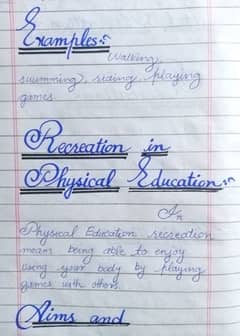 Examples:-
Walking,
swimming, riding, playing
games
Recreation in
Physical Education:-
In
Physical Education recreation
mean being able to enjoy
using your body by playing
games with others.
Aims and